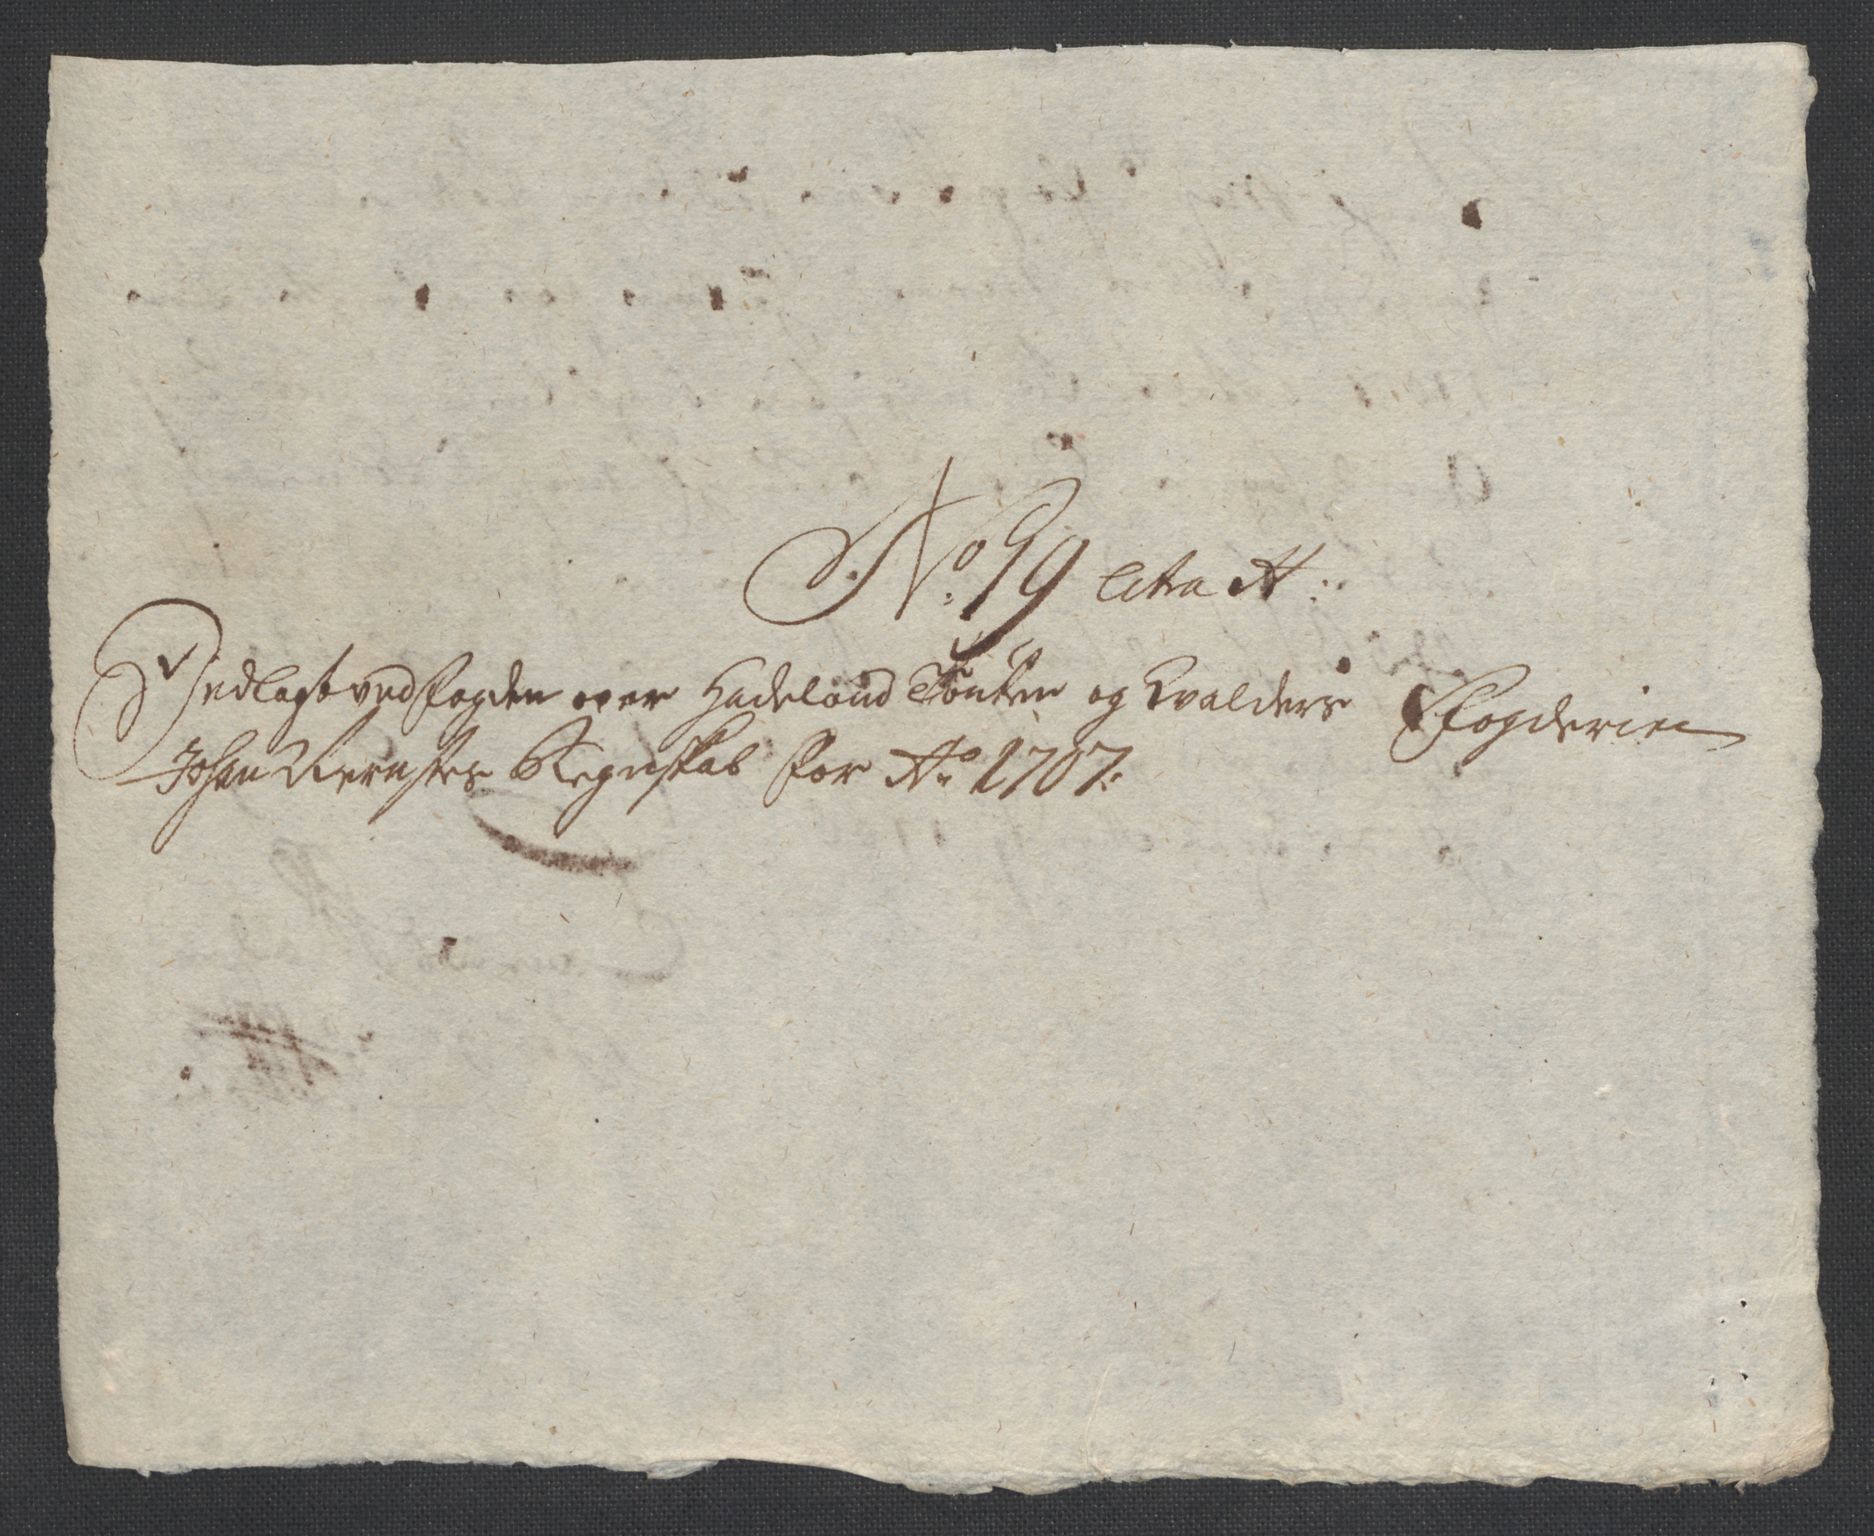 No: 19 Litra A:
Vedlagt ved Fogden over Hadeland Touten og Walders Fogderier
Johan Wernstes Regnskab for Ao 1707: